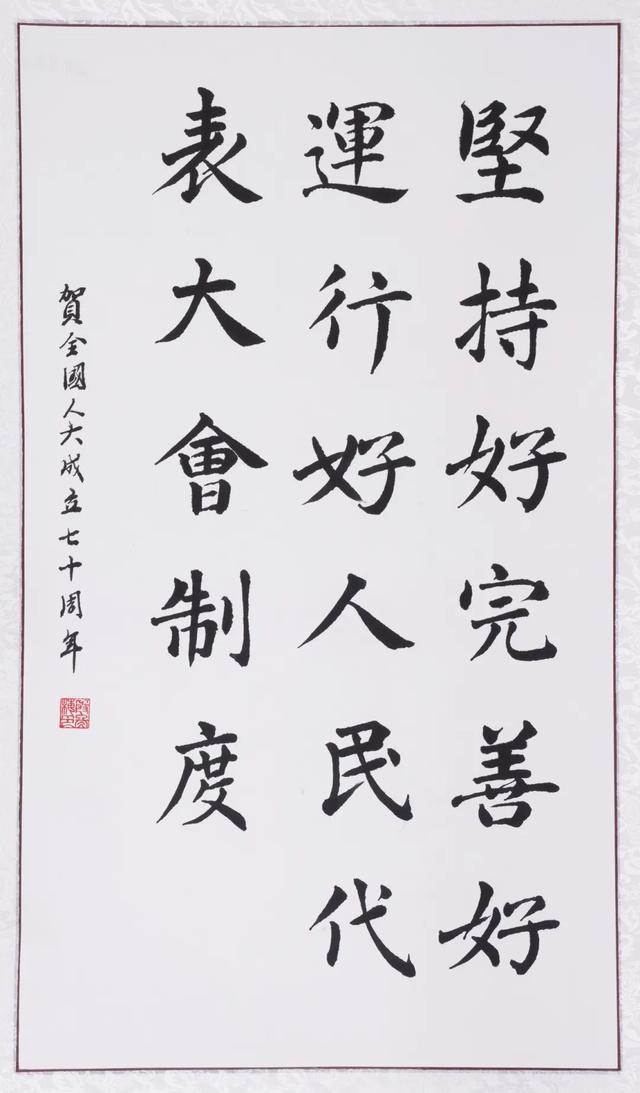 堅持好完善好
運行好人民代
表大會制度
賀全國人大成立七十周年